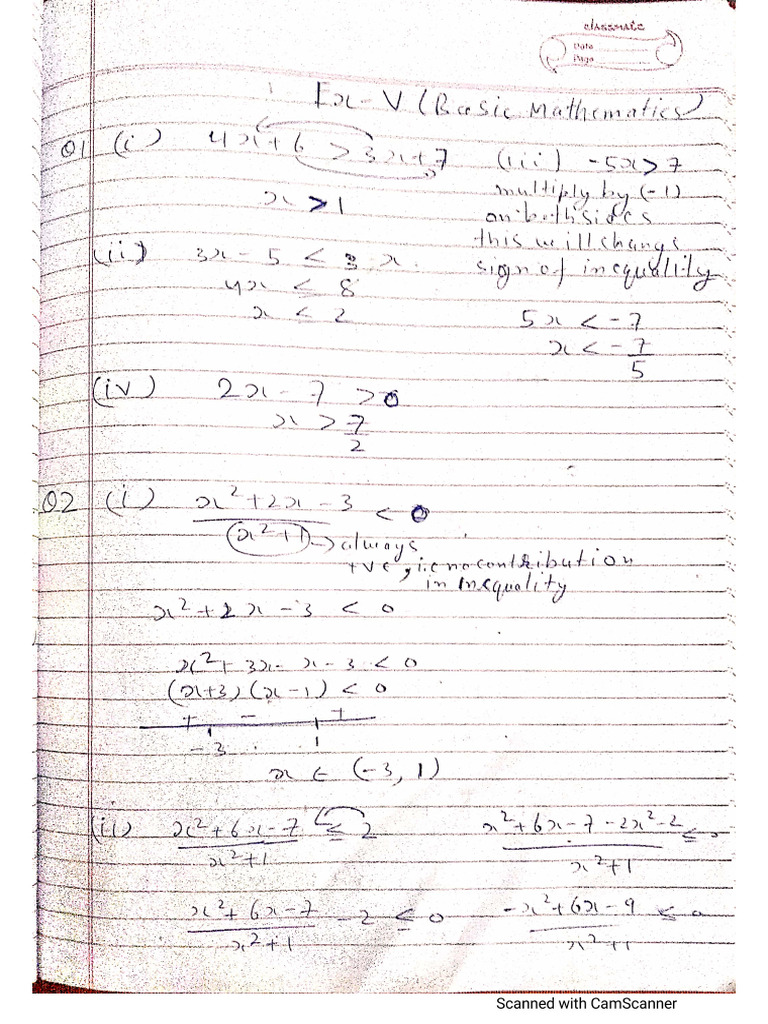 classmate
Date
Page
Ex-V (Basic Mathematics)
Q1 (i) 4x+6 > 3x+7
x > 1
(iii) -5x > 7
multiply by (-1)
on both sides
this will change
sign of inequality
5x < -7
x < -7/5
(ii) 3x - 5 < 3 - x
4x < 8
x < 2
(iv) 2x - 7 > 0
x > 7/2
Q2 (i) (x²+2x-3)/(x²+1) < 0
→ always
+ve, i.e no contribution
in inequality
x²+2x-3 < 0
x²+3x-x-3 < 0
(x+3)(x-1) < 0
+ - +
-3 1
x ∈ (-3, 1)
(ii) (x²+6x-7)/(x²+1) ≤ 2
(x²+6x-7)/(x²+1) - 2 ≤ 0
(x²+6x-7-2x²-2)/(x²+1) ≤ 0
(-x²+6x-9)/(x²+1) ≤ 0
Scanned with CamScanner